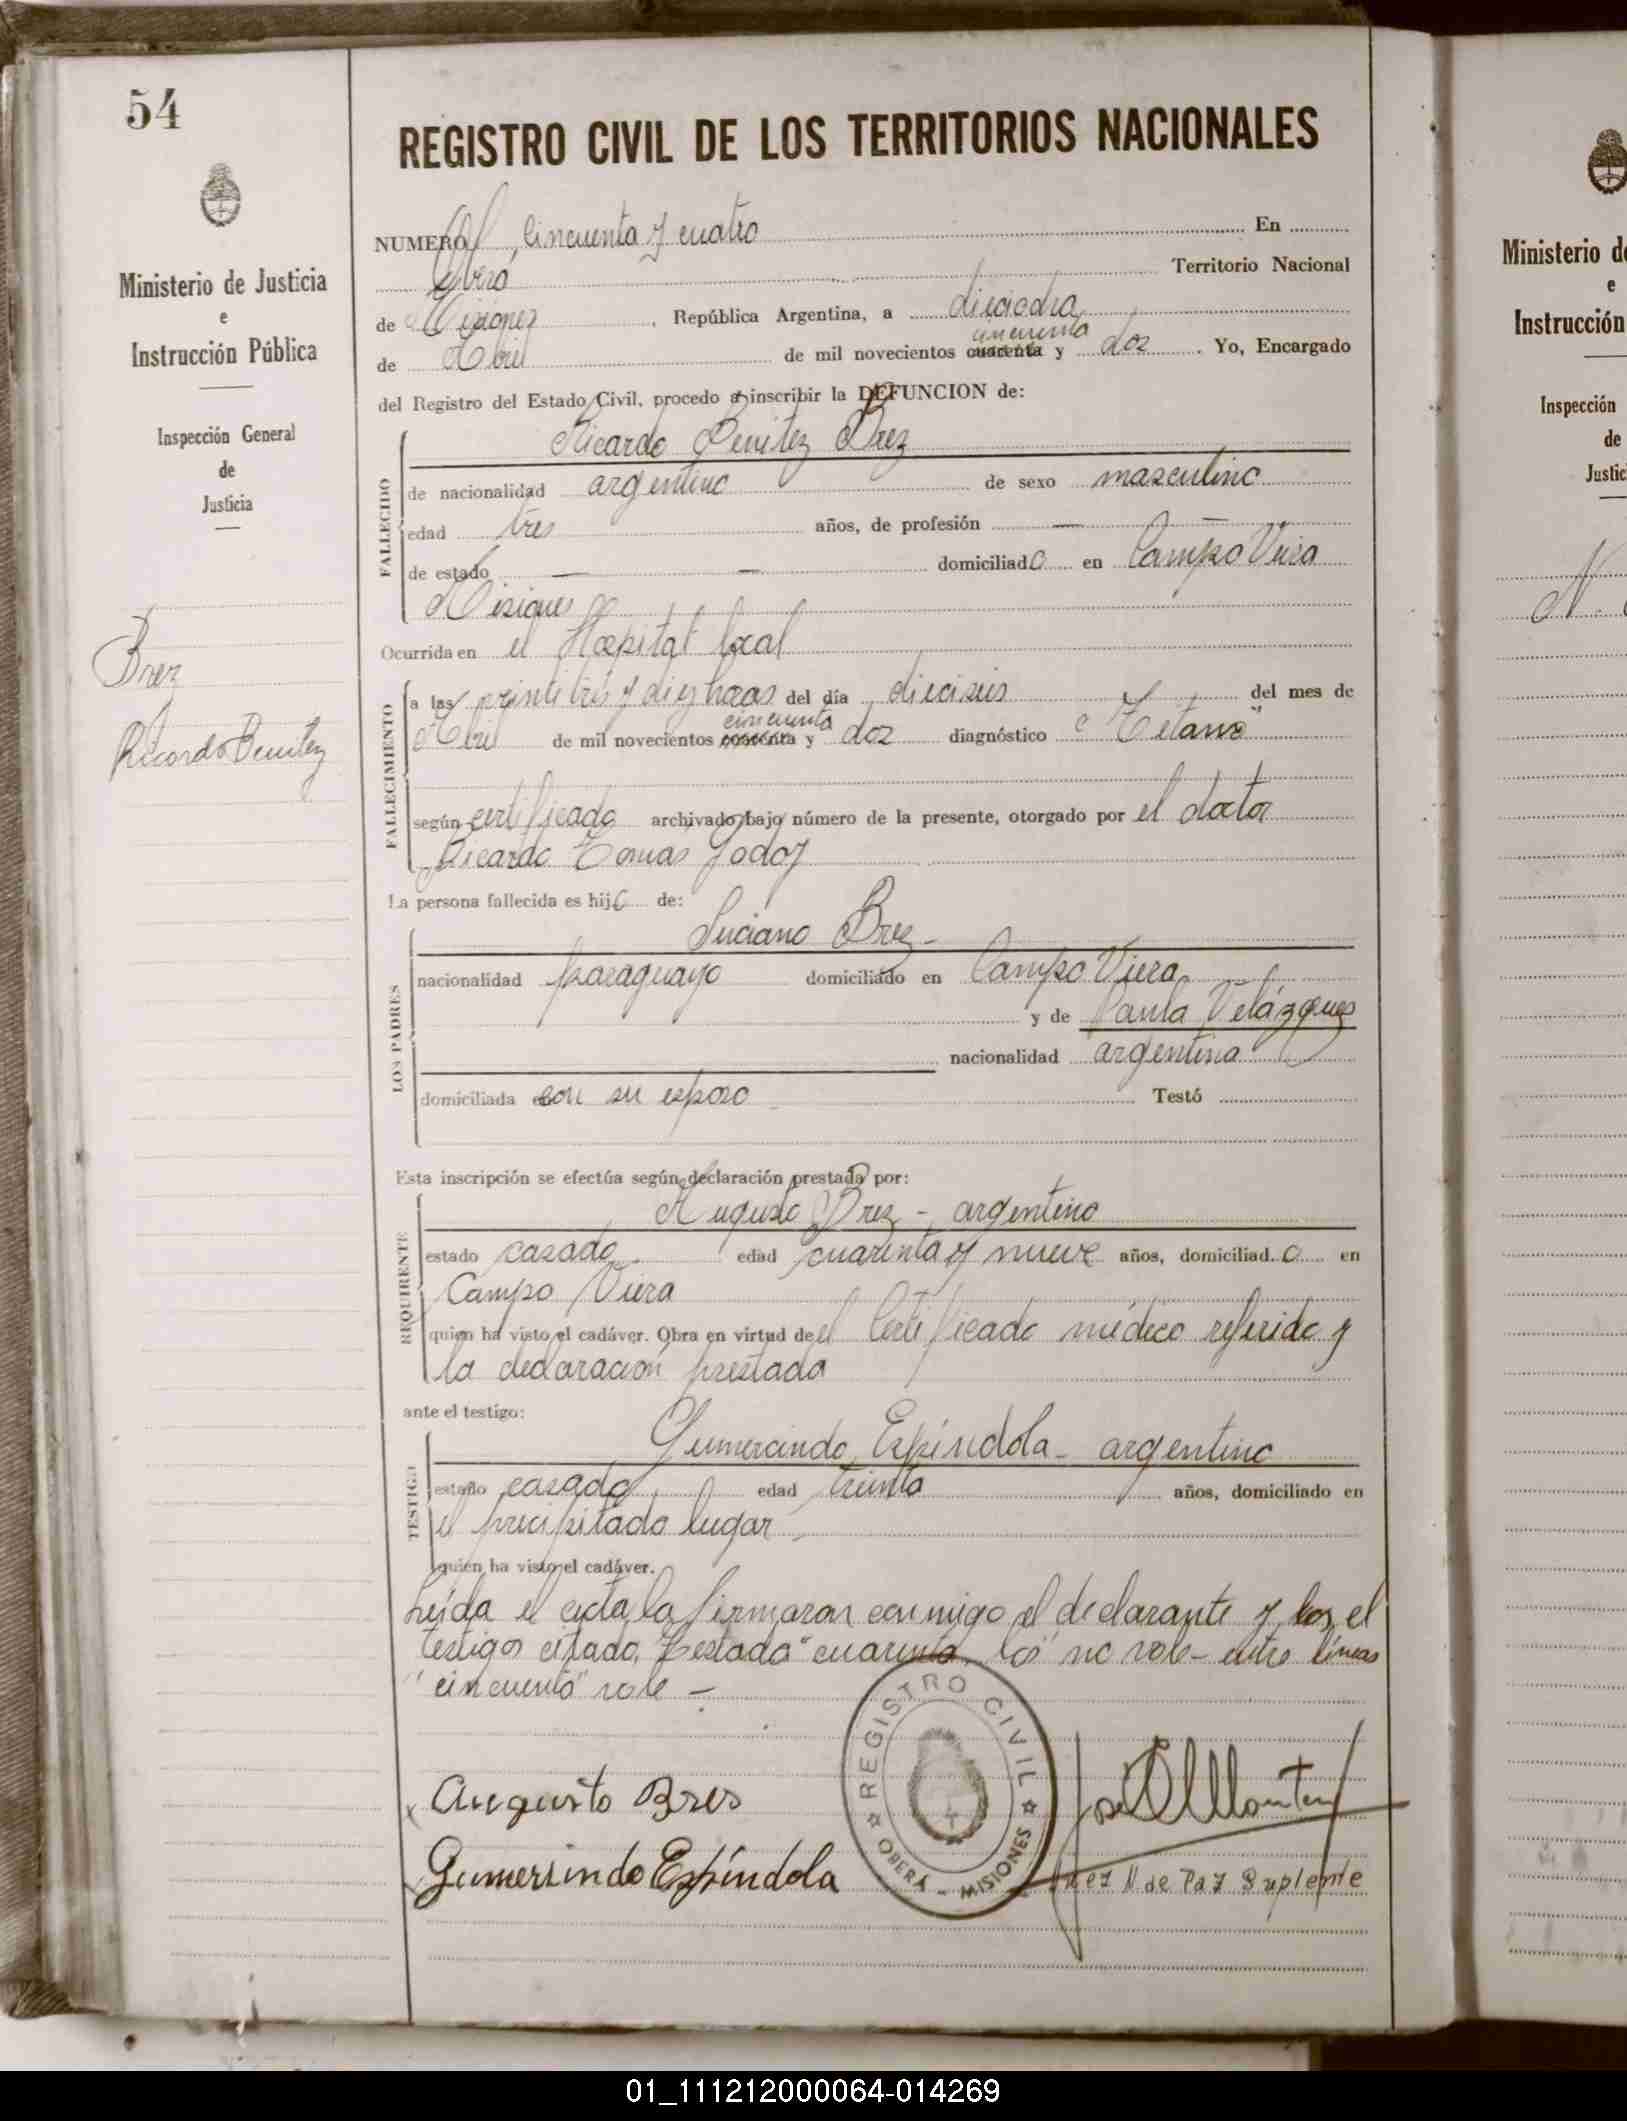 54
REGISTRO CIVIL DE LOS TERRITORIOS NACIONALES
Ministerio de Justicia
e
Instrucción Pública
Inspección General
de
Justicia
Brez
Ricardo Benitez
NUMERO cincuenta y cuatro En
Oberá Territorio Nacional
de Misiones, República Argentina, a dieciocho
cincuenta
de Abril de mil novecientos cuarenta y dos. Yo, Encargado
del Registro del Estado Civil, procedo a inscribir la DEFUNCION de:
FALLECIDO
Ricardo Benitez Brez
de nacionalidad argentino de sexo masculino
edad tres años, de profesión —
de estado — — domiciliado en Campo Viera
Misiones
Ocurrida en el Hospital local
FALLECIMIENTO
a las veintitrés y diez horas del día dieciseis del mes de
cincuenta
Abril de mil novecientos cuarenta y dos diagnóstico "Tetano"
según certificado archivado bajo número de la presente, otorgado por el doctor
Ricardo Tomas Godoy
La persona fallecida es hijo de:
LOS PADRES
Luciano Brez -
nacionalidad paraguayo domiciliado en Campo Viera
y de Paula Velázquez
nacionalidad argentina
domiciliada con su esposo Testó
Esta inscripción se efectúa según declaración prestada por:
REQUIRENTE
Augusto Brez - argentino
estado casado edad cuarenta y nueve años, domiciliado en
Campo Viera
quien ha visto el cadáver. Obra en virtud de el Certificado médico referido y
la declaración prestada
ante el testigo:
TESTIGO
Gumercindo Espíndola - argentino
estado casado edad treinta años, domiciliado en
el precipitado lugar
quien ha visto el cadáver.
Leída el acta la firmaron conmigo el declarante y los el
testigos citado, Testado "cuarenta, los" no vale - entre líneas
"cincuenta" vale -
Augusto Bres
Gumersindo Espíndola
REGISTRO CIVIL
OBERÁ - MISIONES
Juez N de Paz Suplente
Ministerio de
e
Instrucción
Inspección
de
Justic
N.
01_111212000064-014269